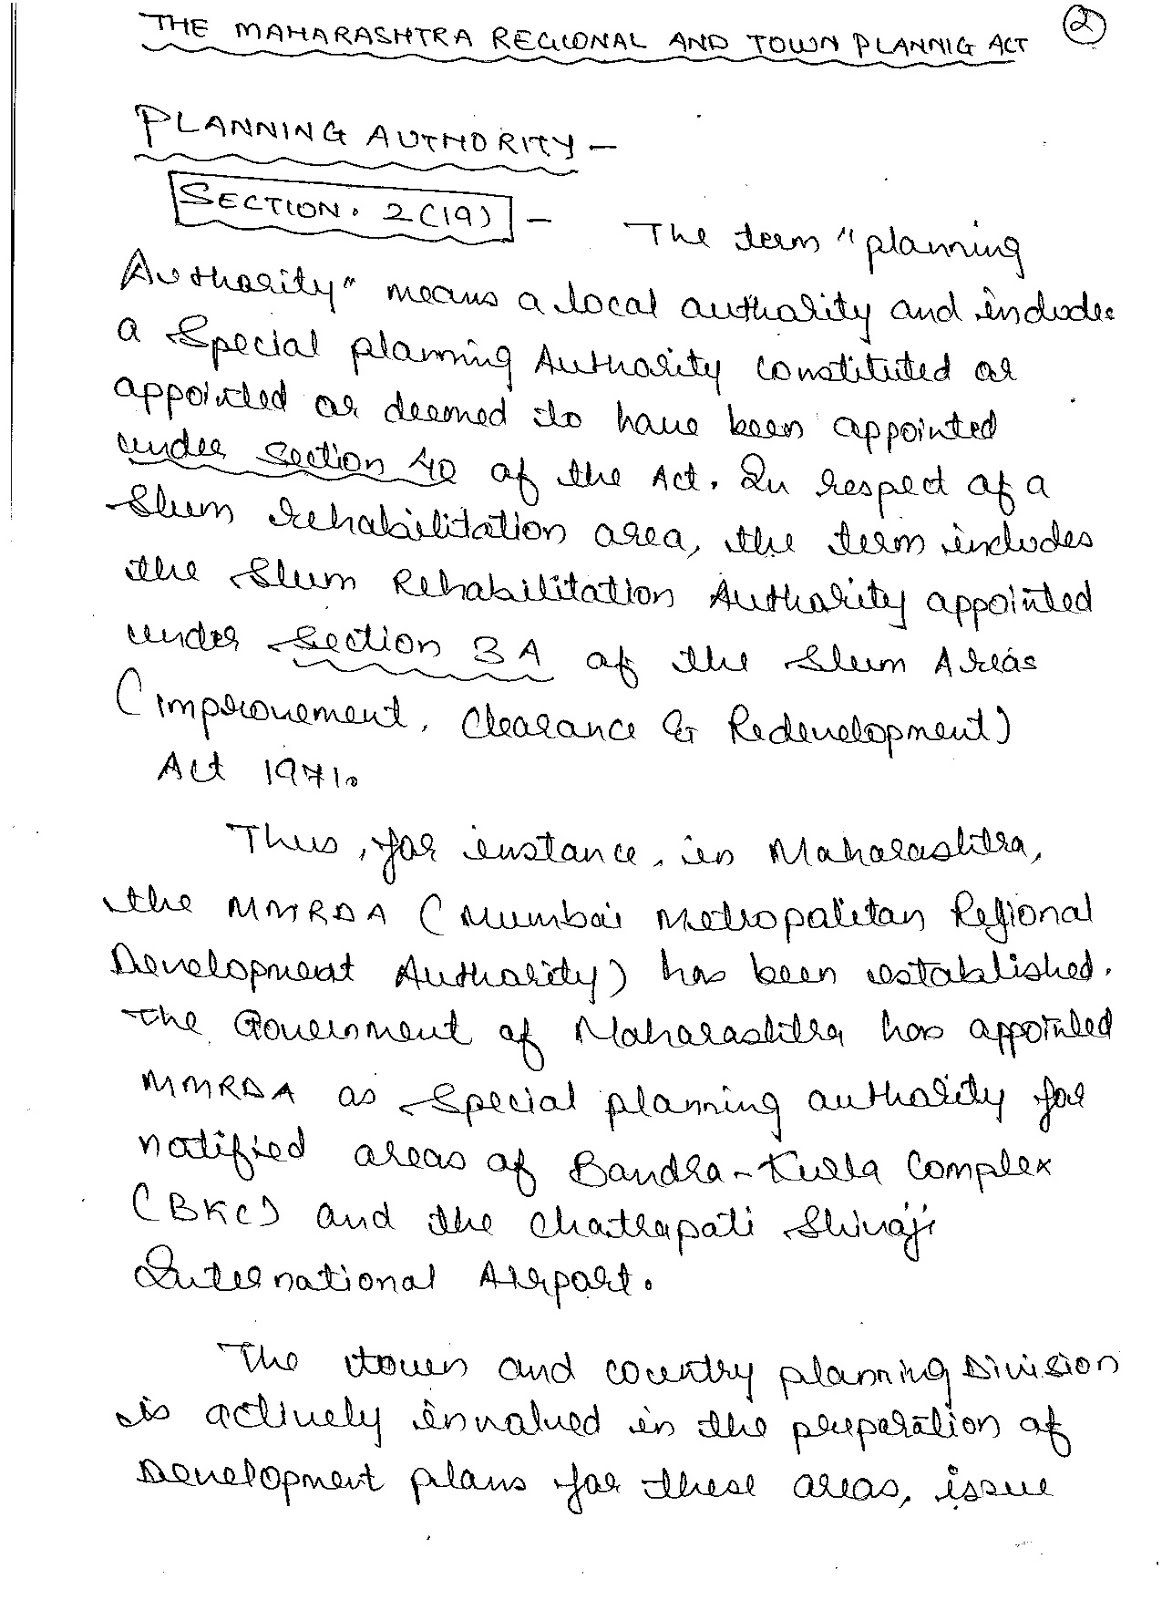 THE MAHARASHTRA REGIONAL AND TOWN PLANNIG ACT
2
PLANNING AUTHORITY -
SECTION. 2(19) - The term "planning
Authority" means a local authority and includes
a Special planning Authority constituted or
appointed or deemed to have been appointed
under section 40 of the Act. In respect of a
Slum rehabilitation area, the term includes
the Slum Rehabilitation Authority appointed
under Section 3A of the Slum Areas
(improvement, Clearance & Redevelopment)
Act 1971.
Thus, for instance, in Maharashtra,
the MMRDA (Mumbai Metropolitan Regional
Development Authority) has been established.
The Government of Maharashtra has appointed
MMRDA as Special planning authority for
notified areas of Bandra-Kurla Complex
(BKC) and the Chatrapati Shivaji
International Airport.
The town and country planning Division
is actively involved in the preparation of
Development plans for these areas, issue